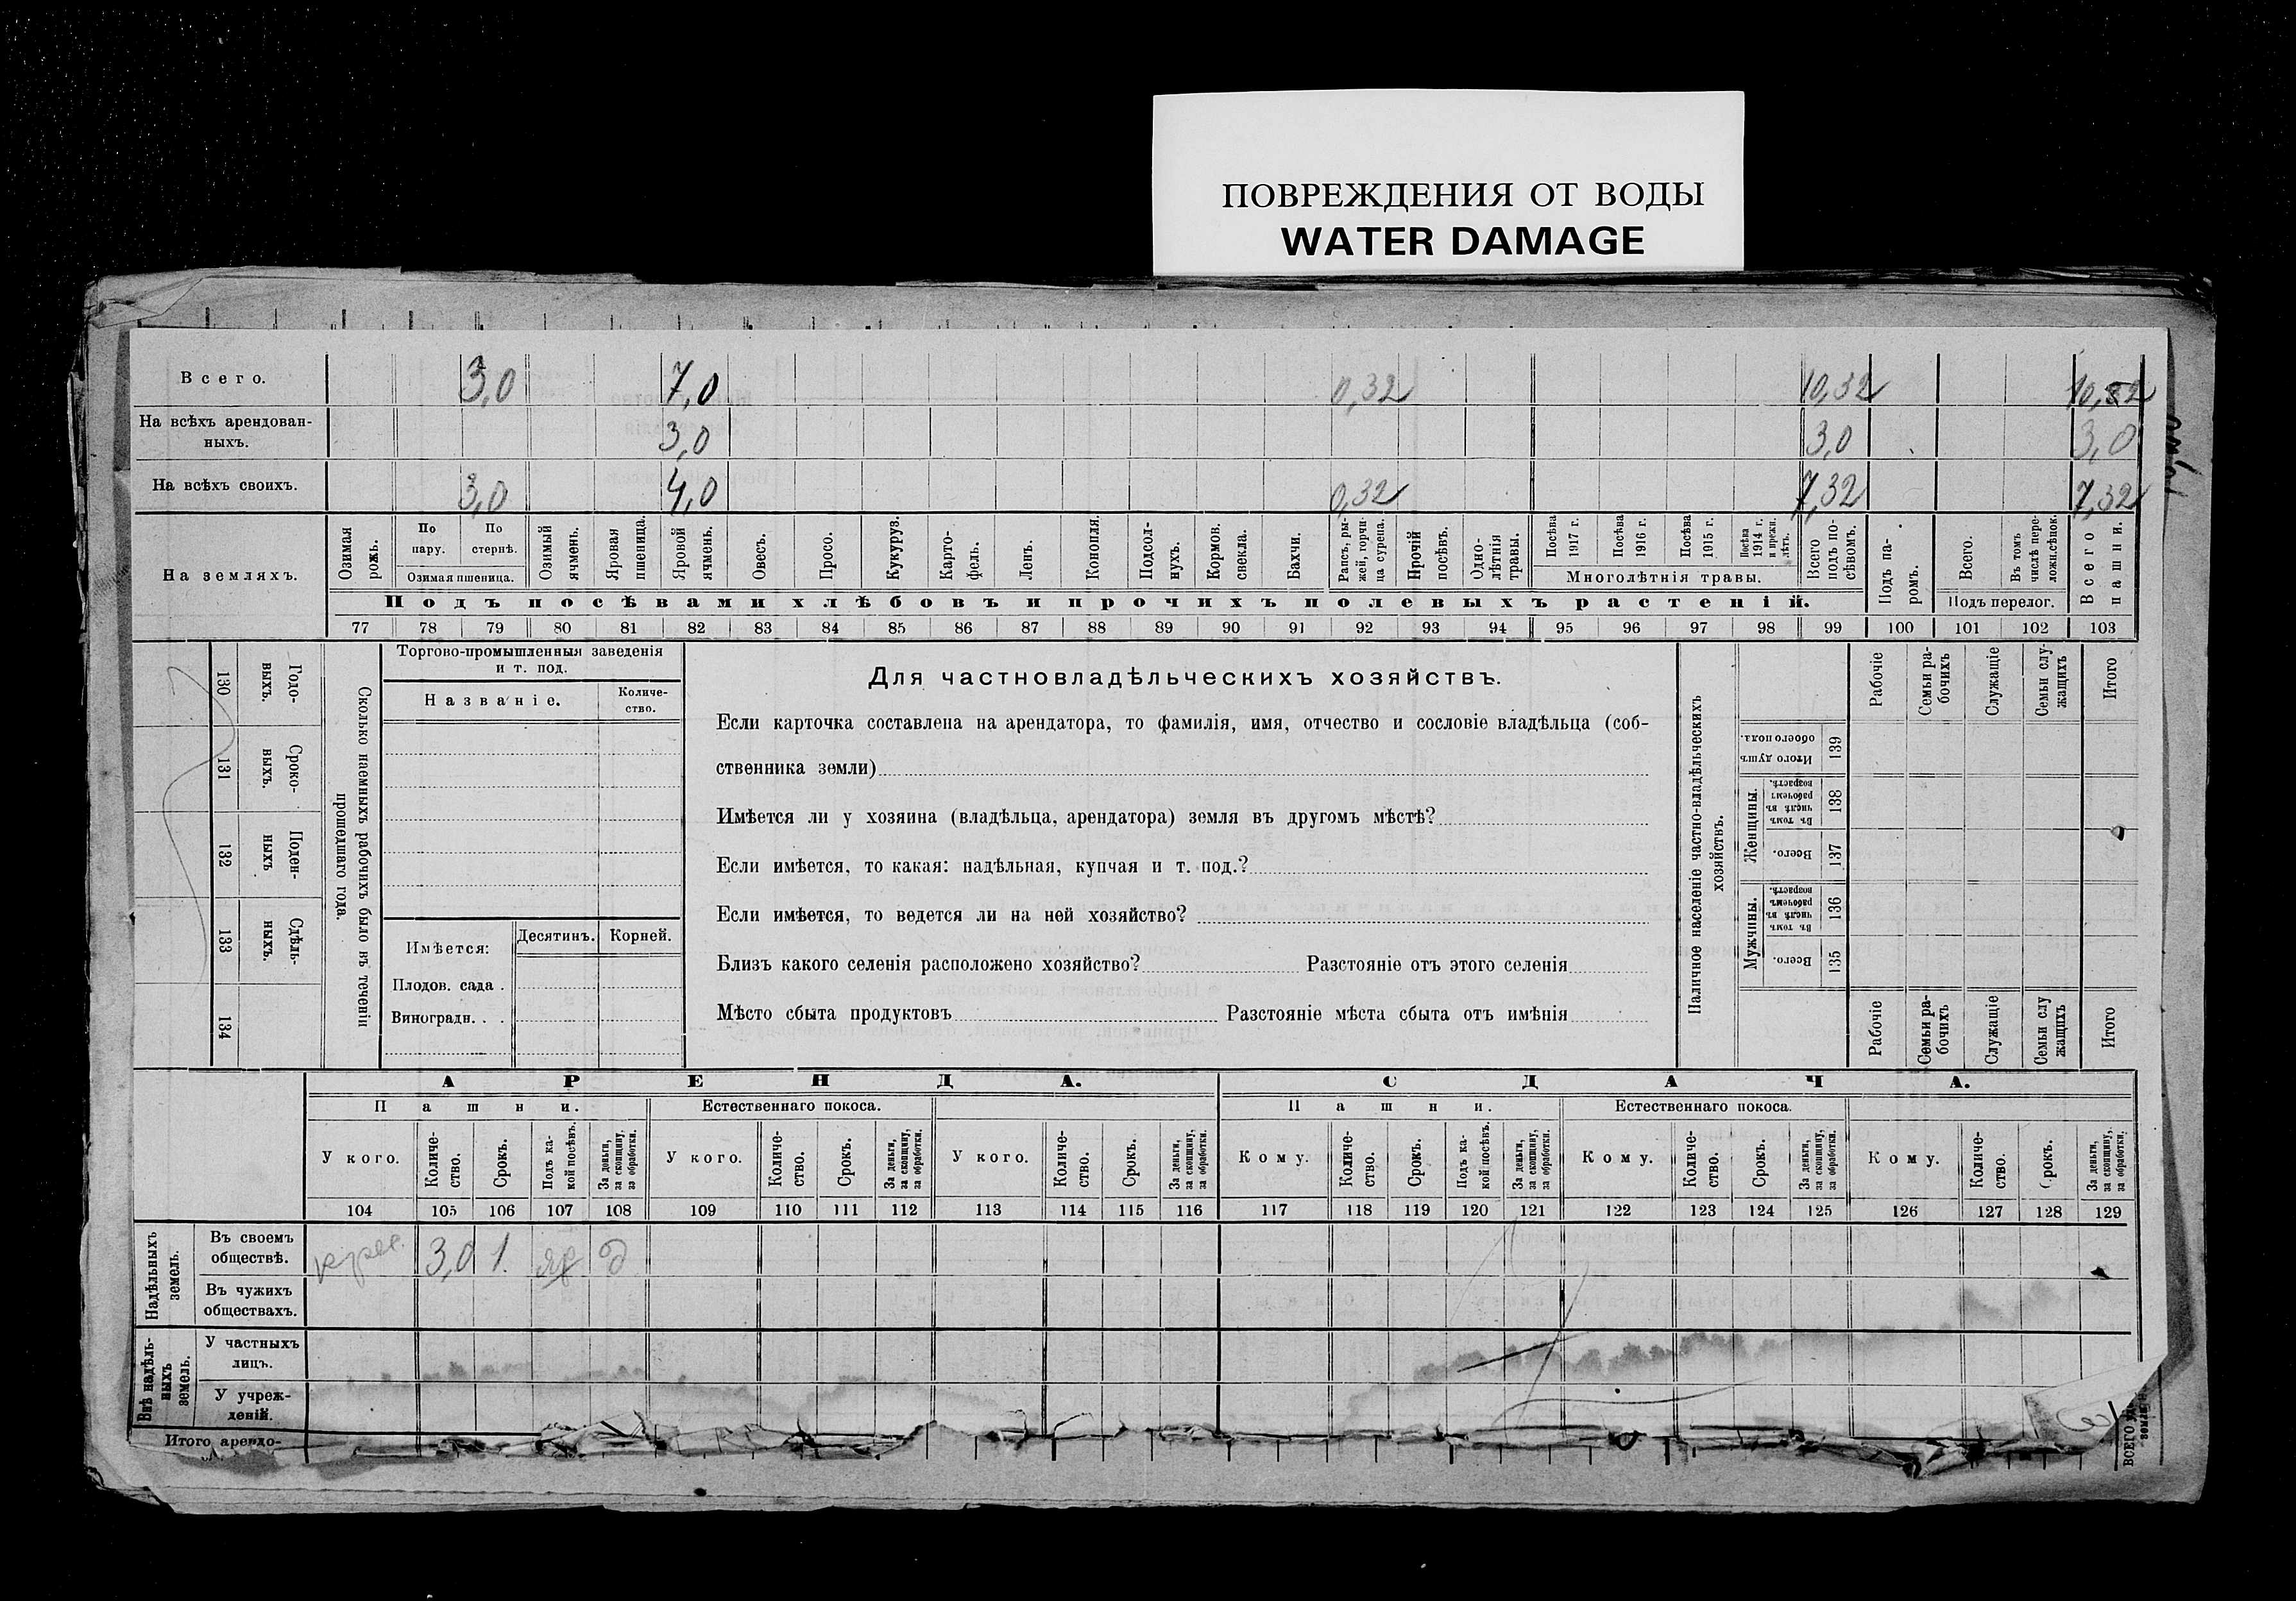 ПОВРЕЖДЕНИЯ ОТ ВОДЫ
WATER DAMAGE
Всего. 3,0 7,0 0,32 10,32 10,32
На всѣхъ арендован-
ныхъ. 3,0 3,0 3,0
На всѣхъ своихъ. 3,0 4,0 0,32 7,32 7,32
На земляхъ.
Озимая рожь.
По пару.
По стернѣ.
Озимая пшеница.
Озимый ячмень.
Яровая пшеница.
Яровой ячмень.
Овесъ.
Просо.
Кукуруз.
Карто-
фель.
Ленъ.
Конопля.
Подсол-
нухъ.
Кормов. свекла.
Бахчи.
Рапсъ, ры-
жей, горчи-
ца сурепа.
Прочій посѣвъ.
Одно-
лѣтнія травы.
Посѣва 1917 г.
Посѣва 1916 г.
Посѣва 1915 г.
Посѣва 1914 г. и прежн. лѣтъ.
Многолѣтнія травы.
Всего подъ по-
сѣвомъ.
Подъ па-
ромъ.
Всего.
Въ томъ числѣ пере-
ложн.сѣнок.
Подъ перелог.
Всего пашни.
Подъ посѣвами хлѣбовъ и прочихъ полевыхъ растеній.
77 78 79 80 81 82 83 84 85 86 87 88 89 90 91 92 93 94 95 96 97 98 99 100 101 102 103
130 Годо-
выхъ.
131 Сроко-
выхъ.
132 Поден-
ныхъ
133 Сдѣль-
ныхъ.
134
Сколько наемныхъ рабочихъ было въ теченіи
прошедшаго года.
Торгово-промышленныя заведенія
и т. под.
Названіе.
Количе-
ство.
Имѣется:
Десятинъ. Корней.
Плодов. сада .
Виноградн. . .
Для частновладѣльческихъ хозяйствъ.
Если карточка составлена на арендатора, то фамилія, имя, отчество и сословіе владѣльца (соб-
ственника земли)
Имѣется ли у хозяина (владѣльца, арендатора) земля въ другомъ мѣстѣ?
Если имѣется, то какая: надѣльная, купчая и т. под.?
Если имѣется, то ведется ли на ней хозяйство?
Близъ какого селенія расположено хозяйство? Разстояніе отъ этого селенія
Мѣсто сбыта продуктовъ Разстояніе мѣста сбыта отъ имѣнія
Наличное населеніе частно-владѣльческихъ
хозяйствъ.
Рабочіе
Семьи ра-
бочихъ
Служащіе
Семьи слу-
жащихъ
Итого
Итого душъ
обоего пола.
139
Женщины.
Въ томъ числѣ въ рабочемъ возрастѣ.
138
Всего.
137
Мужчины.
Въ томъ числѣ въ рабочемъ возрастѣ.
136
Всего.
135
Рабочіе
Семьи ра-
бочихъ
Служащіе
Семьи слу
жащихъ
Итого
АРЕНДА. СДАЧА.
Пашни. Естественнаго покоса. Пашни. Естественнаго покоса.
У кого.
Количе-
ство.
Срокъ.
Подъ ка-
кой посѣвъ.
За деньги,
за скопщину,
за обработки.
У кого.
Количе-
ство.
Срокъ.
За деньги,
за скопщину,
за обработки.
У кого.
Количе-
ство.
Срокъ.
За деньги,
за скопщину,
за обработки.
Кому.
Количе-
ство.
Срокъ.
Подъ ка-
кой посѣвъ.
За деньги,
за скопщину,
за обработки.
Кому.
Количе-
ство.
Срокъ.
За деньги,
за скопщину,
за обработки.
Кому.
Количе-
ство.
Срокъ.
За деньги,
за скопщину,
за обработки.
104 105 106 107 108 109 110 111 112 113 114 115 116 117 118 119 120 121 122 123 124 125 126 127 128 129
Надѣльныхъ
земель.
Въ своемъ
обществѣ. 3,0 1. д
Въ чужихъ
обществахъ.
Внѣ надѣль-
ныхъ
земель.
У частныхъ
лицъ.
У учреж-
деній.
Итого арендо-
ВСЕГО